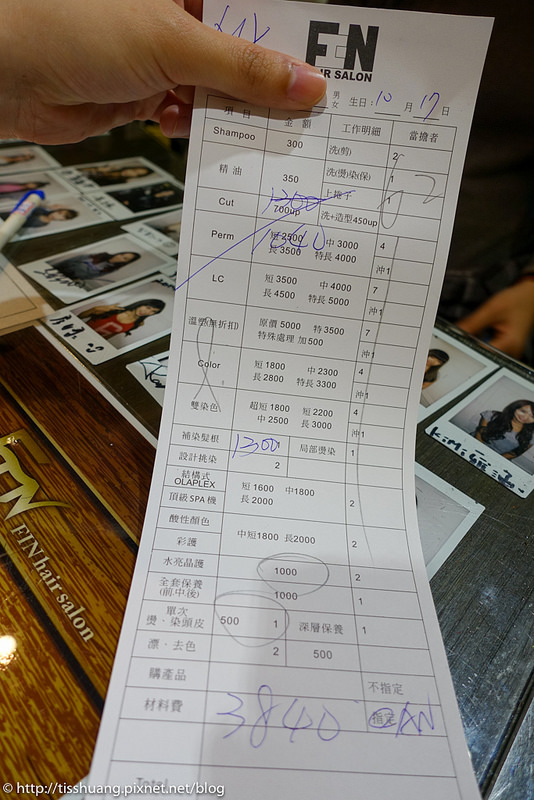 FIN
HAIR SALON
男
女 生日：10 月 17 日
項 目 金 額 工作明細 當擔者
Shampoo 300 洗(剪) 2
精油 350 洗(燙)染(保) 1
上捲子 1
Cut 700up 洗+造型450up
1300
Perm 短2500 中3000 4
長3500 特長4000 沖1
1040
LC 短3500 中4000 7
長4500 特長5000 沖1
溫塑(無折扣) 原價5000 特3500 7
特殊處理 加500 沖1
Color 短1800 中2300 4
長2800 特長3300 沖1
雙染色 超短1800 短2200 4
中2500 長3000 沖1
補染髮根 1300 局部燙染 1
設計挑染 2
結構式
OLAPLEX 短1600 中1800
頂級SPA機 長2000 2
酸性顏色
彩護 中短1800 長2000 2
水亮晶護 1000 2
全套保養
(前.中後) 1000 1
單次
燙、染頭皮 500 1 深層保養 1
漂、去色 2 500
購產品 不指定
材料費 3840 指定
Total
FIN hair salon
© http://tisshuang.pixnet.net/blog